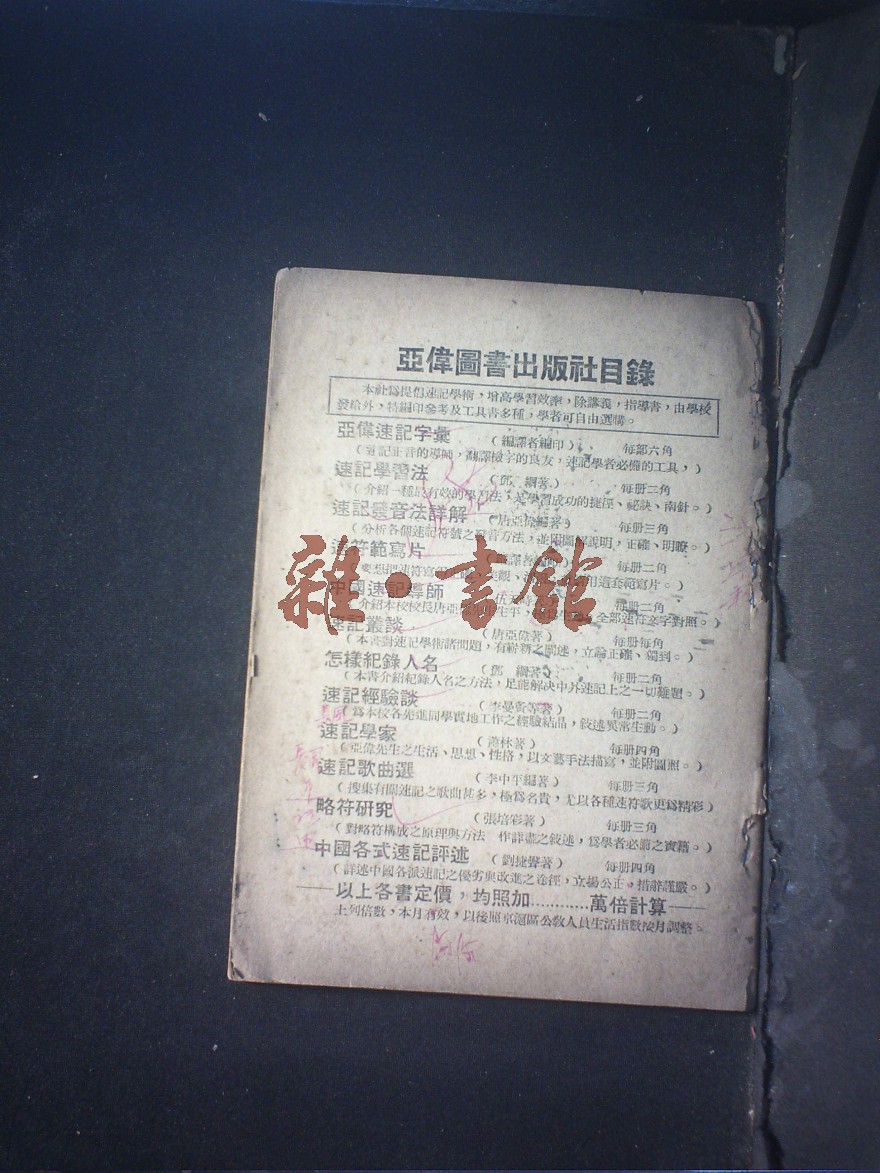 亞偉圖書出版社目錄
本社爲提倡速記學術，增高學習效率，除講義，指導書，由學校
發給外，特編印參考及工具書多種，學者可自由選購。
亞偉速記字彙 （編譯者編印） 每部六角
（速記正音的導師，翻譯檢字的良友，速記學者必備的工具，）
速記學習法 （鄧 綱著） 每册二角
（介紹一種最有效的學習法，是學習成功的捷徑、祕訣、南針。）
速記 音法詳解 （唐亞偉編著） 每册三角
（分析各個速記符號之 音方法，並附圖解說明，正確、明瞭。）
速符範寫片 每册二角
用這套範寫片。）
中國速記導師 每册二角
介紹本校校長唐亞偉 生平， 全部速符文字對照。）
速記叢談 （唐亞偉著） 每册每角
（本書對速記學術諸問題，有嶄新之闡述，立論正確、獨到。）
怎樣紀錄人名 （鄧 綱著） 每册二角
（本書介紹紀錄人名之方法，足能解决中外速記上之一切難題。）
速記經驗談 （李曼寅等著） 每册二角
（爲本校各先進同學實地工作之經驗結晶，敘述異常生動。）
速記學家 （蕭林著） 每册四角
（亞偉先生之生活、思想、性格，以文藝手法描寫，並附圖照。）
速記歌曲選 （李中平編著） 每册三角
（搜集有關速記之歌曲甚多，極爲名貴，尤以各種速符歌更爲精彩）
略符研究 （張培彩著） 每册三角
（對略符構成之原理與方法 作詳盡之敘述，爲學者必備之寶籍。）
中國各式速記評述 （劉捷聲著） 每册四角
（詳述中國各派速記之優劣與改進之途徑，立場公正，措辭謹嚴。）
——以上各書定價，均照加…………萬倍計算——
上列倍數，本月有效，以後照京滬區公教人員生活指數按月調整。
雜·書館